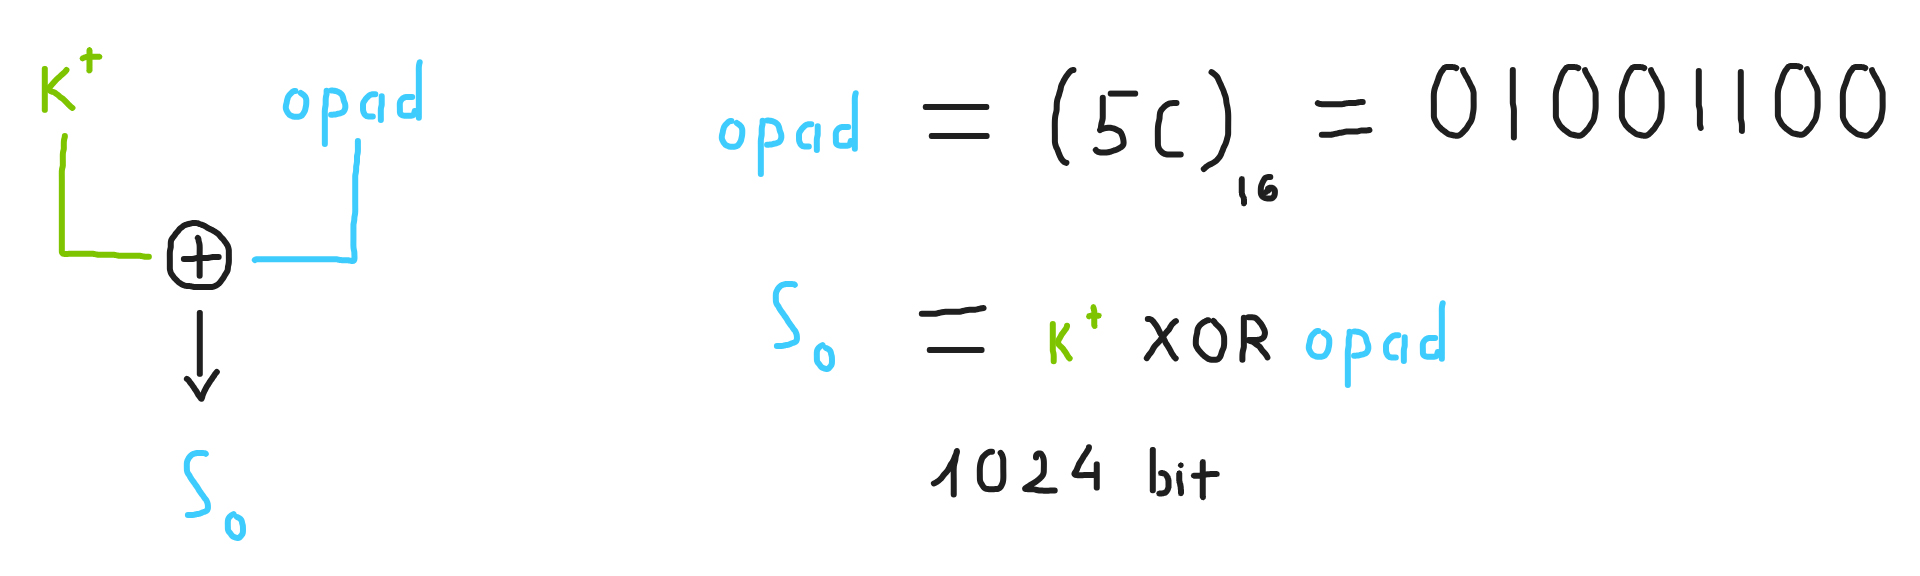 K⁺ opad
⊕
S₀
opad = (5C)₁₆ = 01001100
S₀ = K⁺ XOR opad
1024 bit